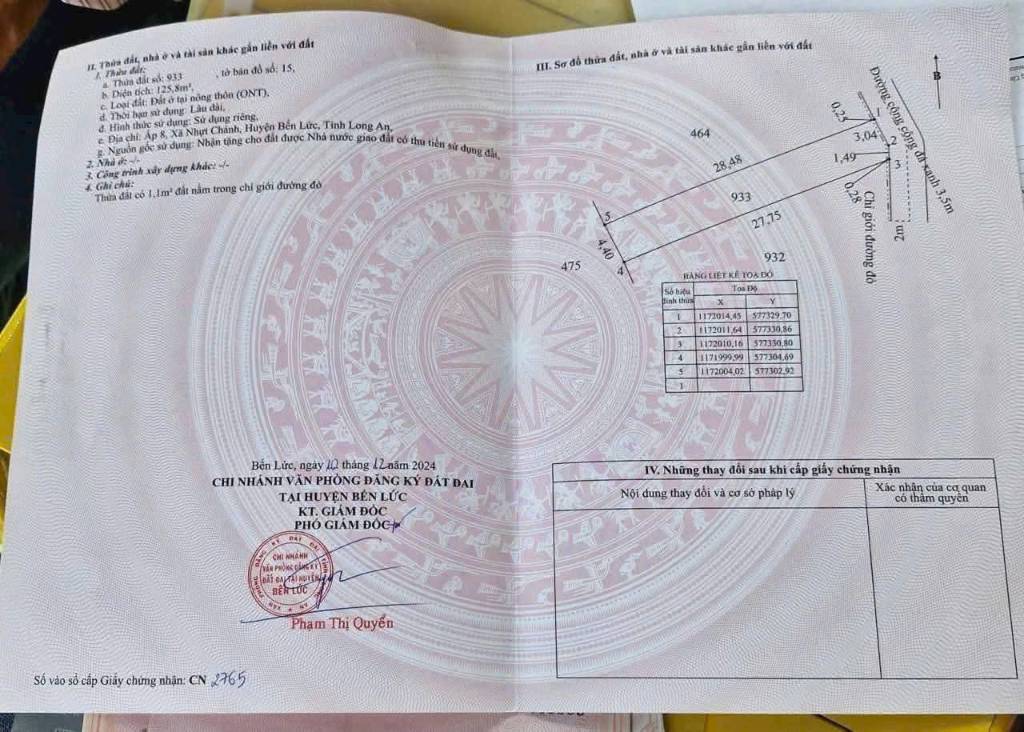 II. Thửa đất, nhà ở và tài sản khác gắn liền với đất
1. Thửa đất:
a. Thửa đất số: 933 , tờ bản đồ số: 15,
b. Diện tích: 125,8m²,
c. Loại đất: Đất ở tại nông thôn (ONT),
d. Thời hạn sử dụng: Lâu dài,
đ. Hình thức sử dụng: Sử dụng riêng,
e. Địa chỉ: Ấp 8, Xã Nhựt Chánh, Huyện Bến Lức, Tỉnh Long An,
g. Nguồn gốc sử dụng: Nhận tặng cho đất được Nhà nước giao đất có thu tiền sử dụng đất,
2. Nhà ở: -/-
3. Công trình xây dựng khác: -/-
4. Ghi chú:
Thửa đất có 1,1m² đất nằm trong chỉ giới đường đỏ
Bến Lức, ngày 10 tháng 12 năm 2024
CHI NHÁNH VĂN PHÒNG ĐĂNG KÝ ĐẤT ĐAI
TẠI HUYỆN BẾN LỨC
KT. GIÁM ĐỐC
PHÓ GIÁM ĐỐC
CHI NHÁNH
VĂN PHÒNG ĐĂNG KÝ
ĐẤT ĐAI TẠI HUYỆN
BẾN LỨC
Phạm Thị Quyển
Số vào sổ cấp Giấy chứng nhận: CN 2765
III. Sơ đồ thửa đất, nhà ở và tài sản khác gắn liền với đất
B
Đường công cộng đá xanh 3,5m
464
0,25
1
3,04
2
28,48
1,49
3
933
0,28
Chỉ giới đường đỏ
2m
5
27,75
4,40
4
475
932
BẢNG LIỆT KÊ TỌA ĐỘ
Số hiệu đỉnh thửa Tọa Độ
X Y
1 1172014,45 577329,70
2 1172011,64 577330,86
3 1172010,16 577330,80
4 1171999,99 577304,69
5 1172004,02 577302,92
1
IV. Những thay đổi sau khi cấp giấy chứng nhận
Nội dung thay đổi và cơ sở pháp lý
Xác nhận của cơ quan
có thẩm quyền